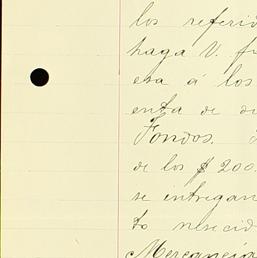 los referi
haga V. f
esa á los
enta de d
Fondos.
de los $ 200.
se entregan
to nesecid
Mercancías